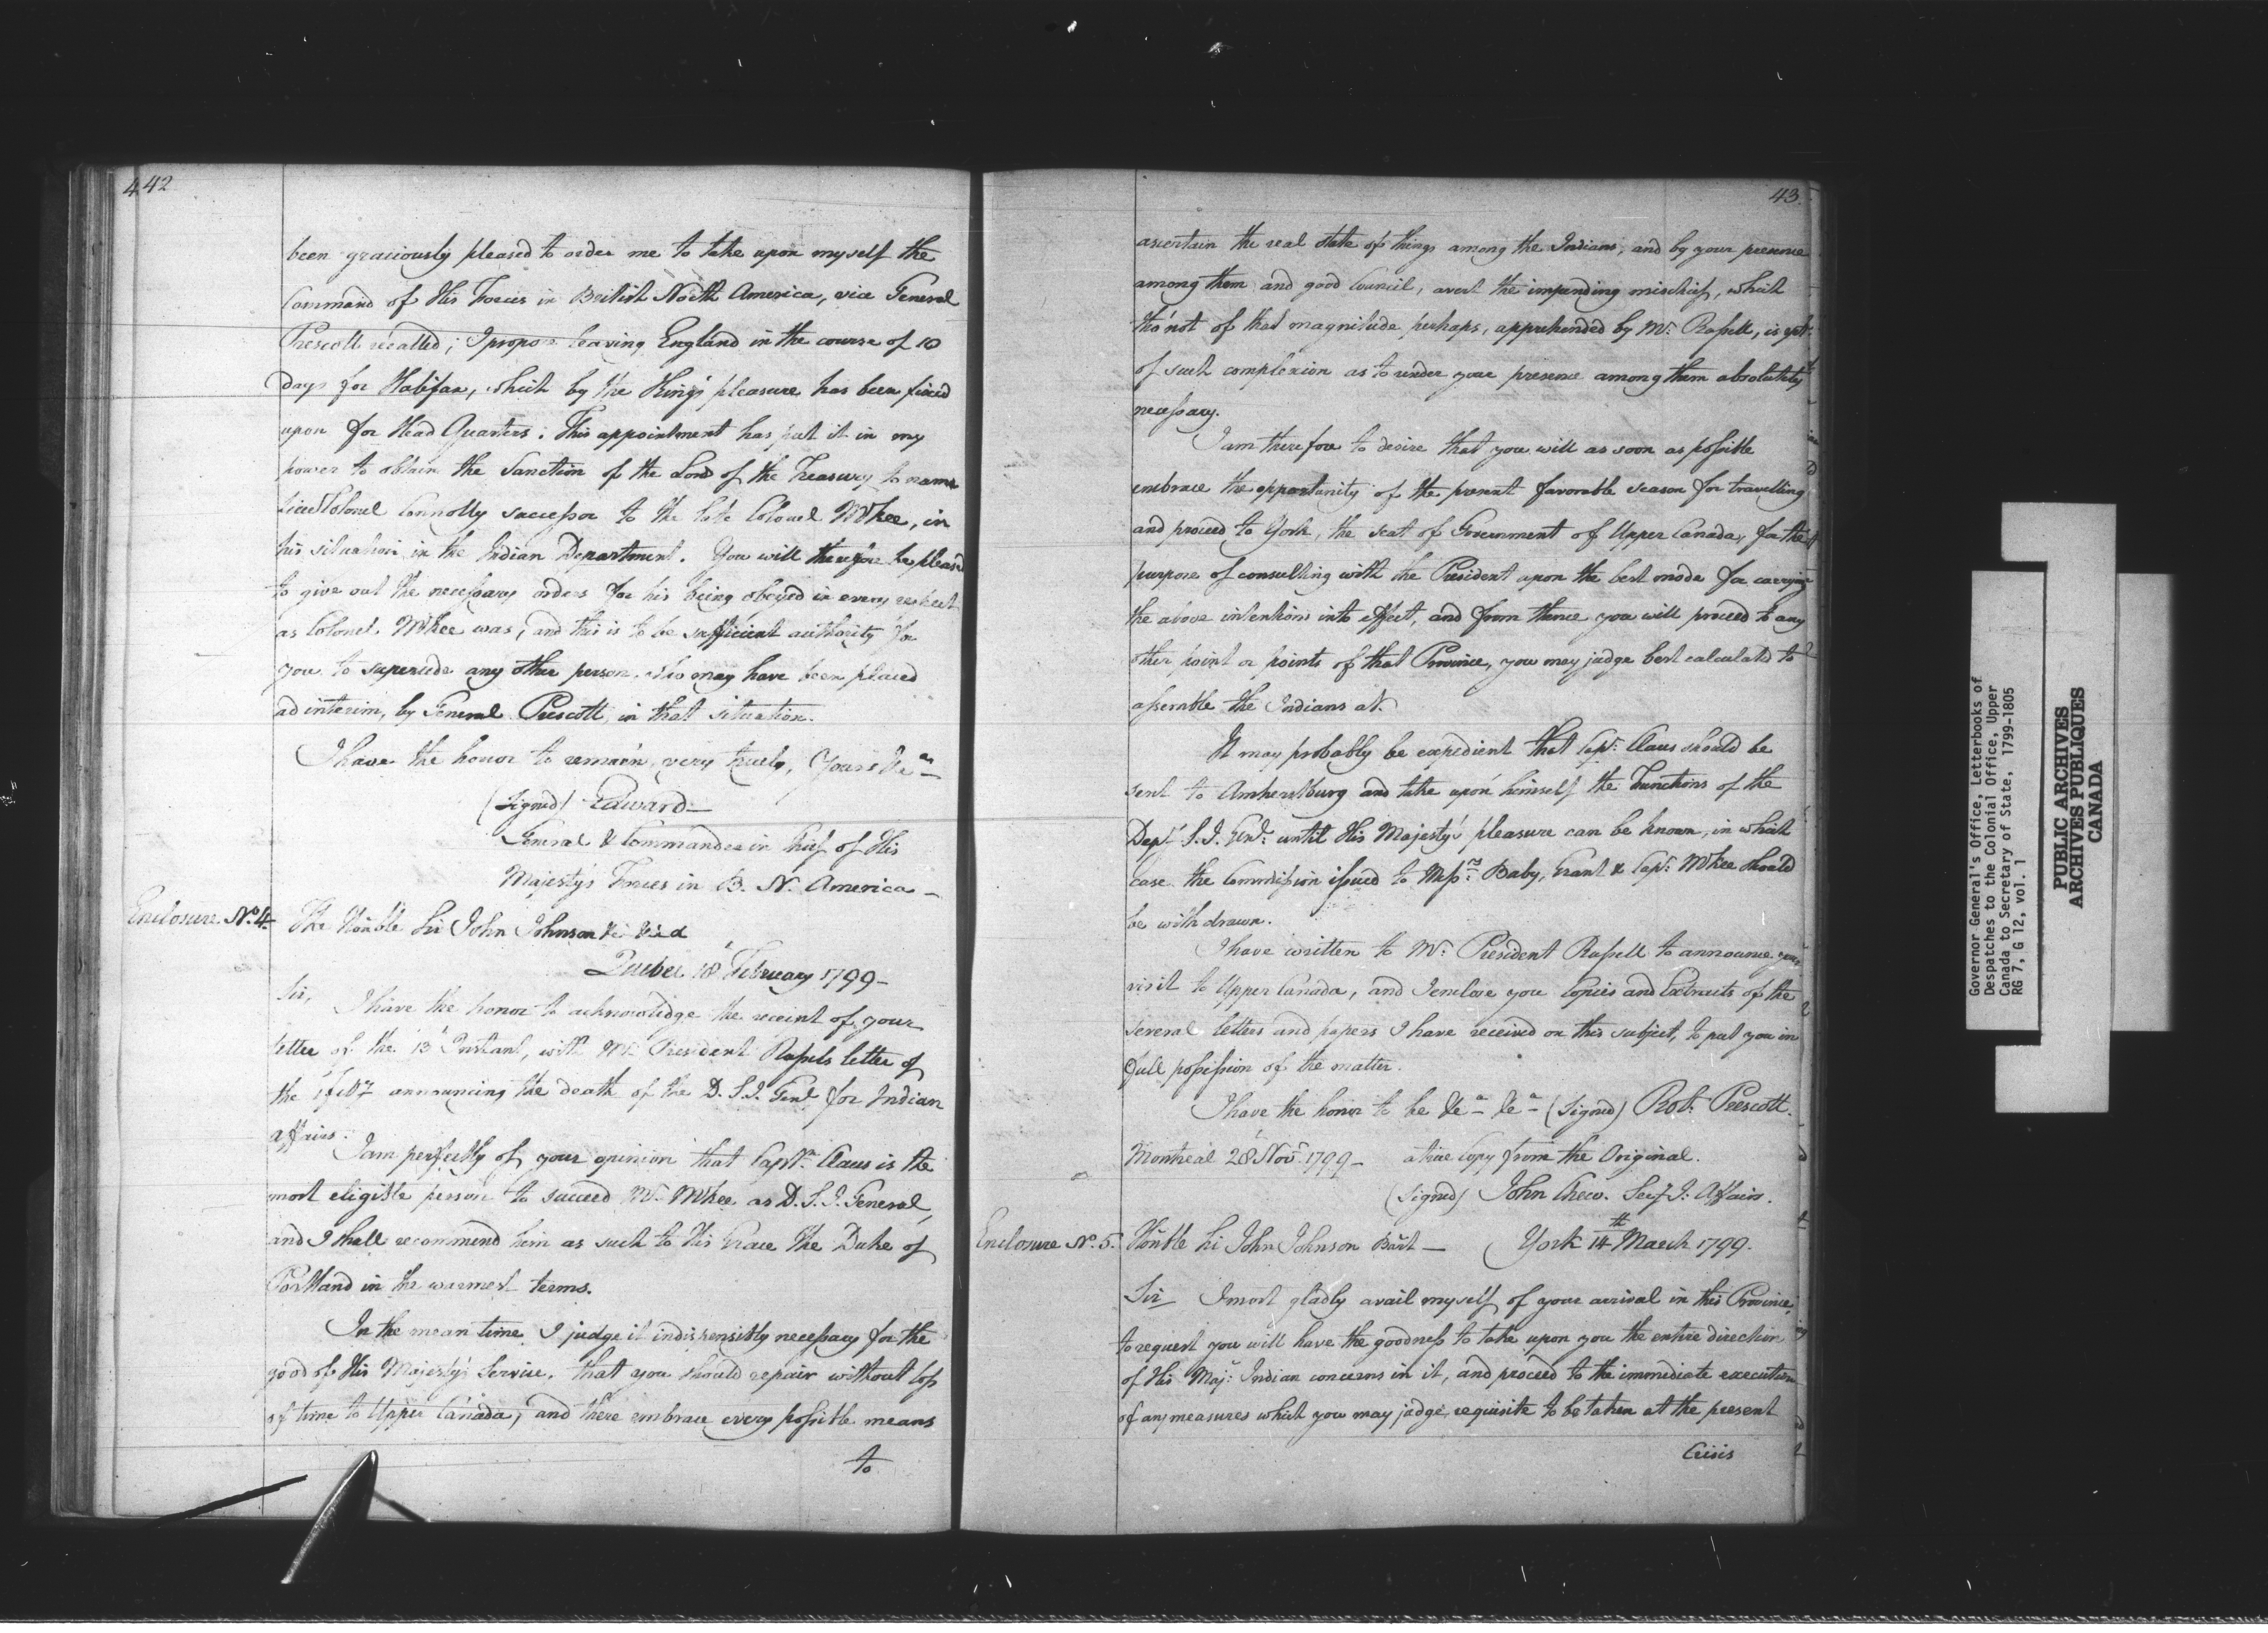 442
been graciously pleased to order me to take upon myself the
Command of His Forces in British North America, vice General
Prescott recalled; I propose leaving England in the course of 10
days for Halifax, which by the King's pleasure has been fixed
upon for Head Quarters. This appointment has put it in my
power to obtain the Sanction of the Lords of the Treasury to name
Lieut Colonel Connolly successor to the late Colonel McKee, in
his situation in the Indian Department. You will therefore be pleased
to give out the necessary orders for his being obeyed in every respect
as Colonel McKee was, and this is to be sufficient authority for
you to supersede any other person, who may have been placed
ad interim, by General Prescott, in that situation.
I have the honor to remain, very truly, Yours &ca
(Signed) Edward
General & Commander in Chief of His
Majesty's Forces in B. N. America
Enclosure No. 4. The Honble Sir John Johnson &c &c &c
Quebec 18 February 1799
Sir,
I have the honor to acknowledge the receipt of your
letter of the 13 Instant, with Mr President Russels letter of
the announcing the death of the D. S. I. Genl for Indian
affairs.
I am perfectly of your opinion that Captn Claus is the
most eligible person to succeed Mr McKee as D. S. I. General,
and I shall recommend him as such to His Grace the Duke of
Portland in the warmest terms.
In the mean time I judge it indispensibly necessary for the
good of His Majesty's Service, that you should repair without loss
of time to Upper Canada, and there embrace every possible means
to
43.
ascertain the real state of things among the Indians; and by your presence
among them and good Council, avert the impending mischief, which
tho' not of that magnitude perhaps, apprehended by Mr Russell, is yet
of such complexion as to render your presence among them absolutely
necessary.
I am therefore to desire that you will as soon as possible
embrace the opportunity of the present favorable season for travelling
and proceed to York, the seat of Government of Upper Canada, for the
purpose of consulting with the President upon the best mode for carrying
the above intentions into effect, and from thence you will proceed to any
other point or points of that Province, you may judge best calculated to
assemble the Indians at.
It may probably be expedient that Capt. Claus should be
sent to Amherstburg and take upon himself the Functions of the
Depy S. I. Genl. until His Majesty's pleasure can be known, in which
case the Commission issued to Messrs Baby, Grant & Capt. McKee should
be withdrawn.
I have written to Mr President Russell to announce your
visit to Upper Canada, and I enclose you Copies and Extracts of the
several letters and papers I have received on this subject, to put you in
full possession of the matter.
I have the honor to be &ca &ca (Signed) Robt Prescott.
Montreal 28 Novr 1799 a true Copy from the Original.
(Signed) John Chew. Secy I. Affairs.
Enclosure No. 5. Honble Sir John Johnson Bart York 14th March 1799.
Sir I most gladly avail myself of your arrival in this Province,
to request you will have the goodness to take upon you the entire direction
of His Maj: Indian concerns in it, and proceed to the immediate execution
of any measures which you may judge requisite to be taken at the present
Crisis
Governor General's Office, Letterbooks of
Despatches to the Colonial Office, Upper
Canada to Secretary of State, 1799-1805
RG 7, G 12, vol. 1
PUBLIC ARCHIVES
ARCHIVES PUBLIQUES
CANADA